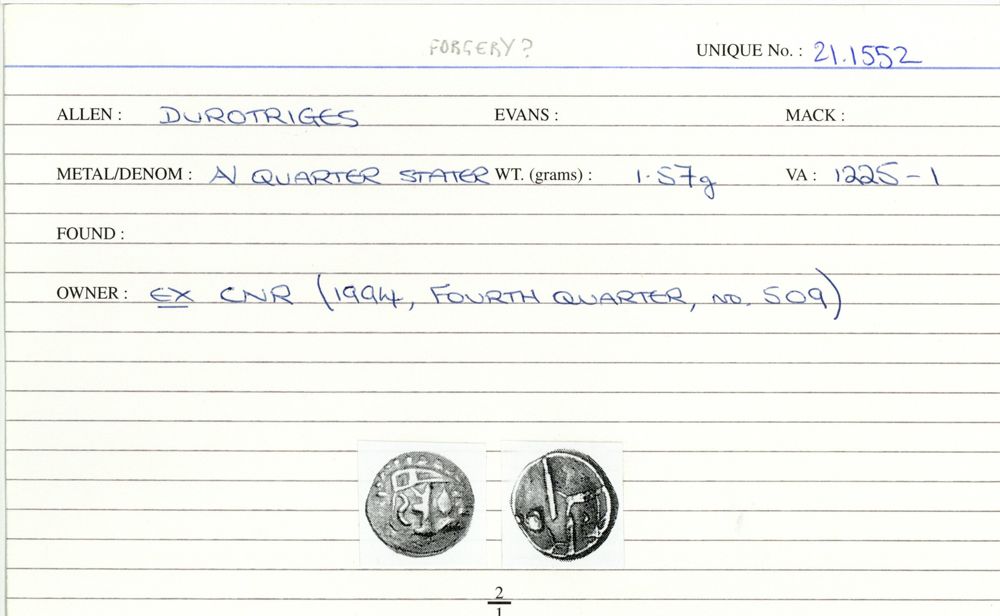 FORGERY?
UNIQUE No. : 21.1552
ALLEN : DUROTRIGES EVANS : MACK :
METAL/DENOM : AV QUARTER STATER WT. (grams) : 1.57g VA : 1225-1
FOUND :
OWNER : EX CNR (1994, FOURTH QUARTER, no. 509)
2
1